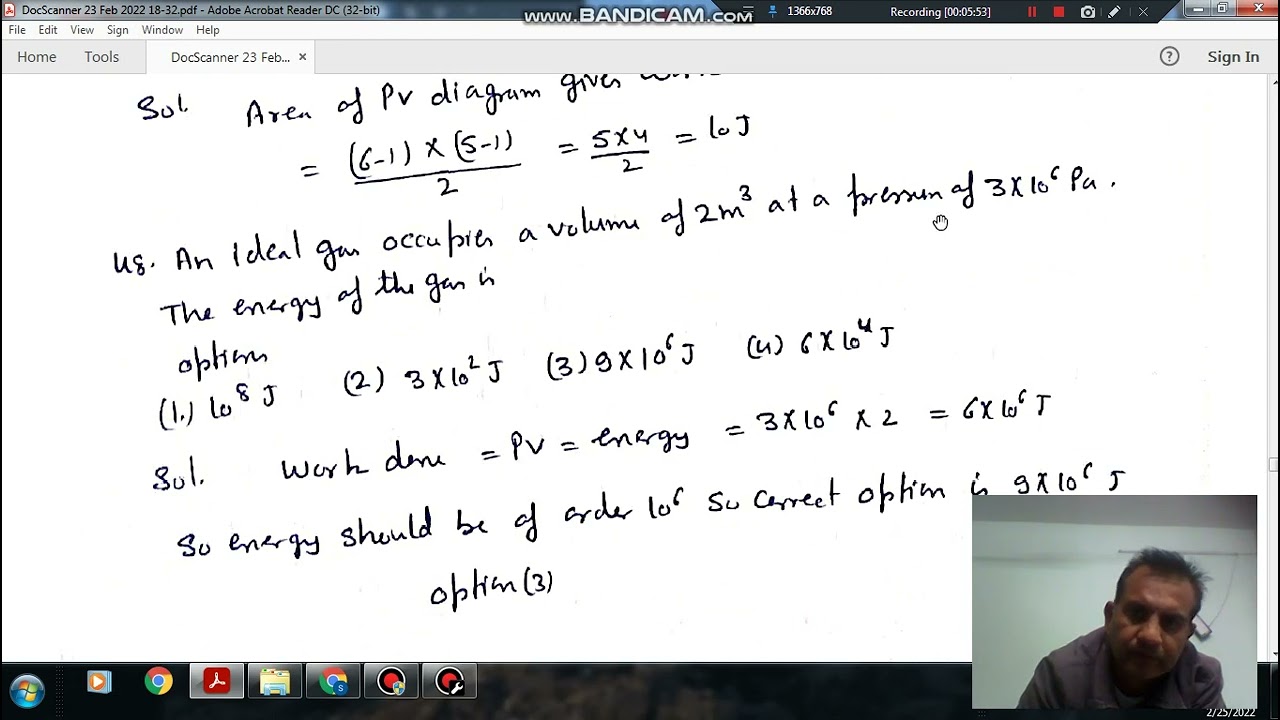 DocScanner 23 Feb 2022 18-32.pdf - Adobe Acrobat Reader DC (32-bit)
www.BANDICAM.com
1366x768
Recording [00:05:53]
File Edit View Sign Window Help
Home Tools DocScanner 23 Feb... × ? Sign In
Sol. Area of PV diagram gives
= (6-1) × (5-1) / 2 = 5×4 / 2 = 10 J
48. An ideal gas occupies a volume of 2m³ at a pressure of 3×10⁶ Pa.
The energy of the gas is
option
(1.) 10⁸ J (2) 3×10² J (3) 9×10⁶ J (4) 6×10⁴ J
Sol. Work done = PV = energy = 3×10⁶ × 2 = 6×10⁶ J
So energy should be of order 10⁶ so correct option is 9×10⁶ J
option (3)
2/25/2022